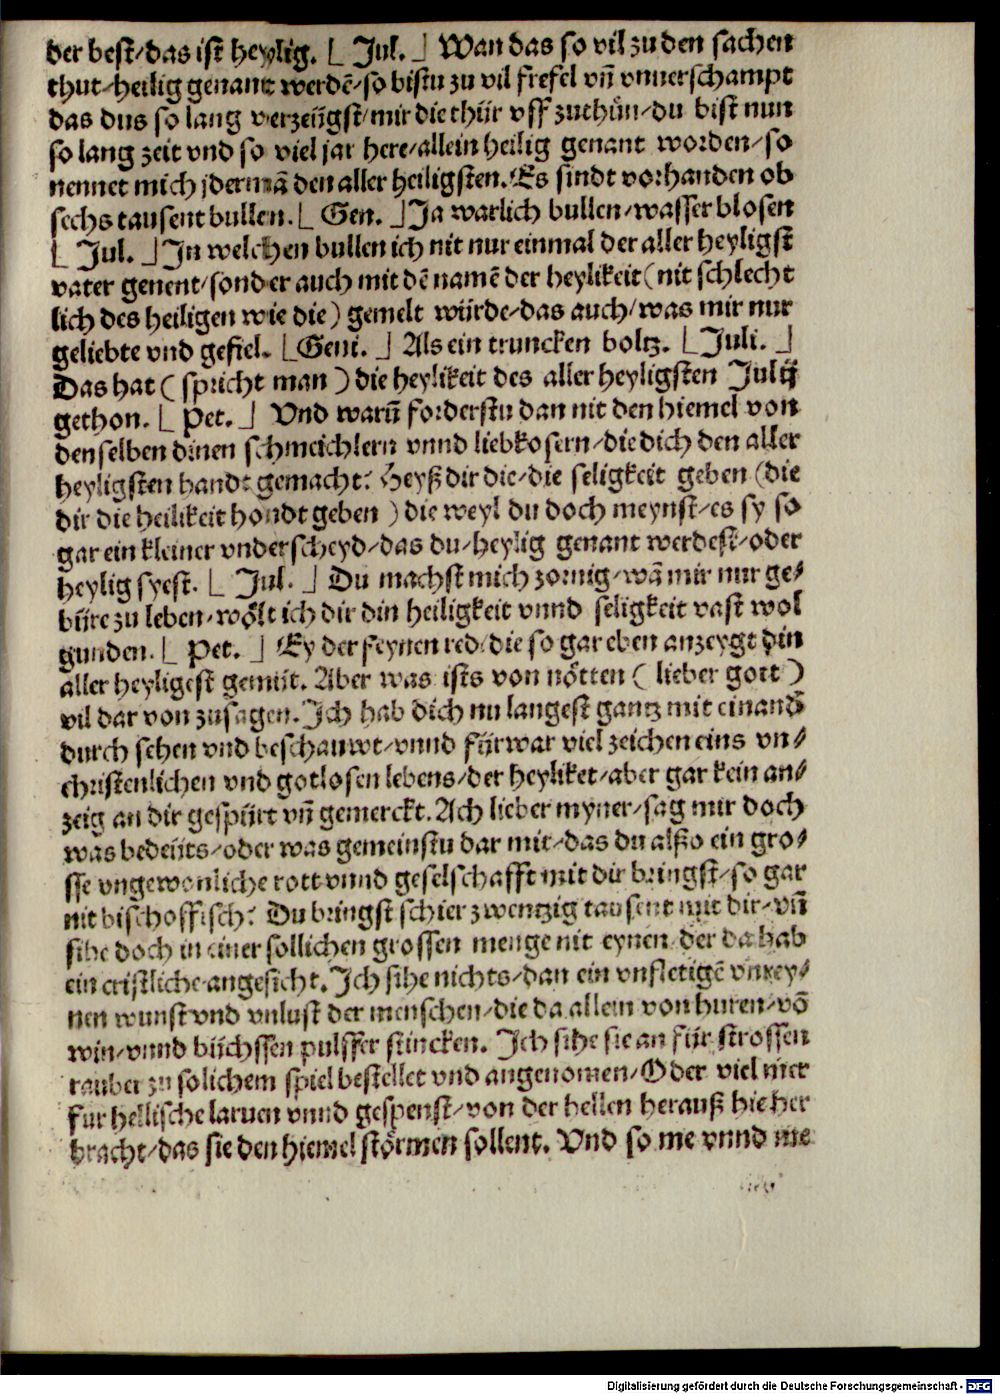 der best/das ist heylig. ⌊ Jul. ⌋ Wan das so vil zu den sachen
thut/heilig genant werdē/so bistu zu vil frefel vñ vnuerschampt
das dus so lang verzeügst/mir die thür vff zuthůn/du bist nun
so lang zeit vnd so viel jar here/allein heilig genant worden/so
nennet mich jdermā den aller heiligsten. Es sindt vorhanden ob
sechs tausent bullen. ⌊ Gen. ⌋ Ja warlich bullen/wasser blosen
⌊ Jul. ⌋ In welchen bullen ich nit nur einmal der aller heyligst
vater genent/sonder auch mit dē namē der heylikeit (nit schlecht
lich des heiligen wie die) gemelt würde/das auch/was mir nur
geliebte vnd gefiel. ⌊ Geni. ⌋ Als ein truncken boltz. ⌊ Juli. ⌋
Das hat (spricht man) die heylikeit des aller heyligsten Julij
gethon. ⌊ Pet. ⌋ Vnd warū forderstu dan nit den hiemel von
denselben dinen schmeichlern vnnd liebkosern/die dich den aller
heyligsten handt gemacht? Heyß dir die/die seligkeit geben (die
dir die heilikeit hondt geben) die weyl du doch meynst/es sy so
gar ein kleiner vnderscheyd/das du/heylig genant werdest/oder
heylig syest. ⌊ Jul. ⌋ Du machst mich zornig/wā mir nur ge/
büre zu leben/wőlt ich dir din heiligkeit vnnd seligkeit vast wol
gunden. ⌊ Pet. ⌋ Ey der feynen red/die so gar eben anzeygt din
aller heyligest gemüt. Aber was ists von nötten (lieber gott)
vil dar von zusagen. Ich hab dich nu langest gantz mit einand̄
durch sehen vnd beschauwt/vnnd fürwar viel zeichen eins vn/
christenlichen vnd gotlosen lebens/der heyliket/aber gar kein an/
zeig an dir gespürt vñ gemerckt. Ach lieber myner/sag mir doch
was bedeüts/oder was gemeinstu dar mit/das du alßo ein gro/
sse vngewonliche rott vnnd geselschafft mit dir bringst/so gar
nit bischoffisch? Du bringst schier zwentzig tausent mit dir/vñ
sihe doch in einer sollichen grossen menge nit eynen/der da hab
ein cristliche angesicht. Ich sihe nichts/dan ein vnfletigē vnrey/
nen wunst vnd vnlust der menschen/die da allein von huren/vō
win/vnnd büchssen pulffer stincken. Ich sihe sie an für strossen
rauber zu solichem spiel bestellet vnd angenomen/Oder viel mer
für hellische laruen vnnd gespenst/von der hellen herauß hie her
bracht/das sie den hiemel störmen sollent. Vnd so me vnnd me
Digitalisierung gefördert durch die Deutsche Forschungsgemeinschaft - DFG